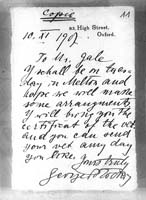 Copie
11
22, High Street,
Oxford.
10. XI 1907.
To Mr. Gale
I shall be on tues-
day in Melton and
hope we will make
some arrangements
I will bring you the
certificate of the vet
and you can send
your wek any day
you like.
Yours truly
George